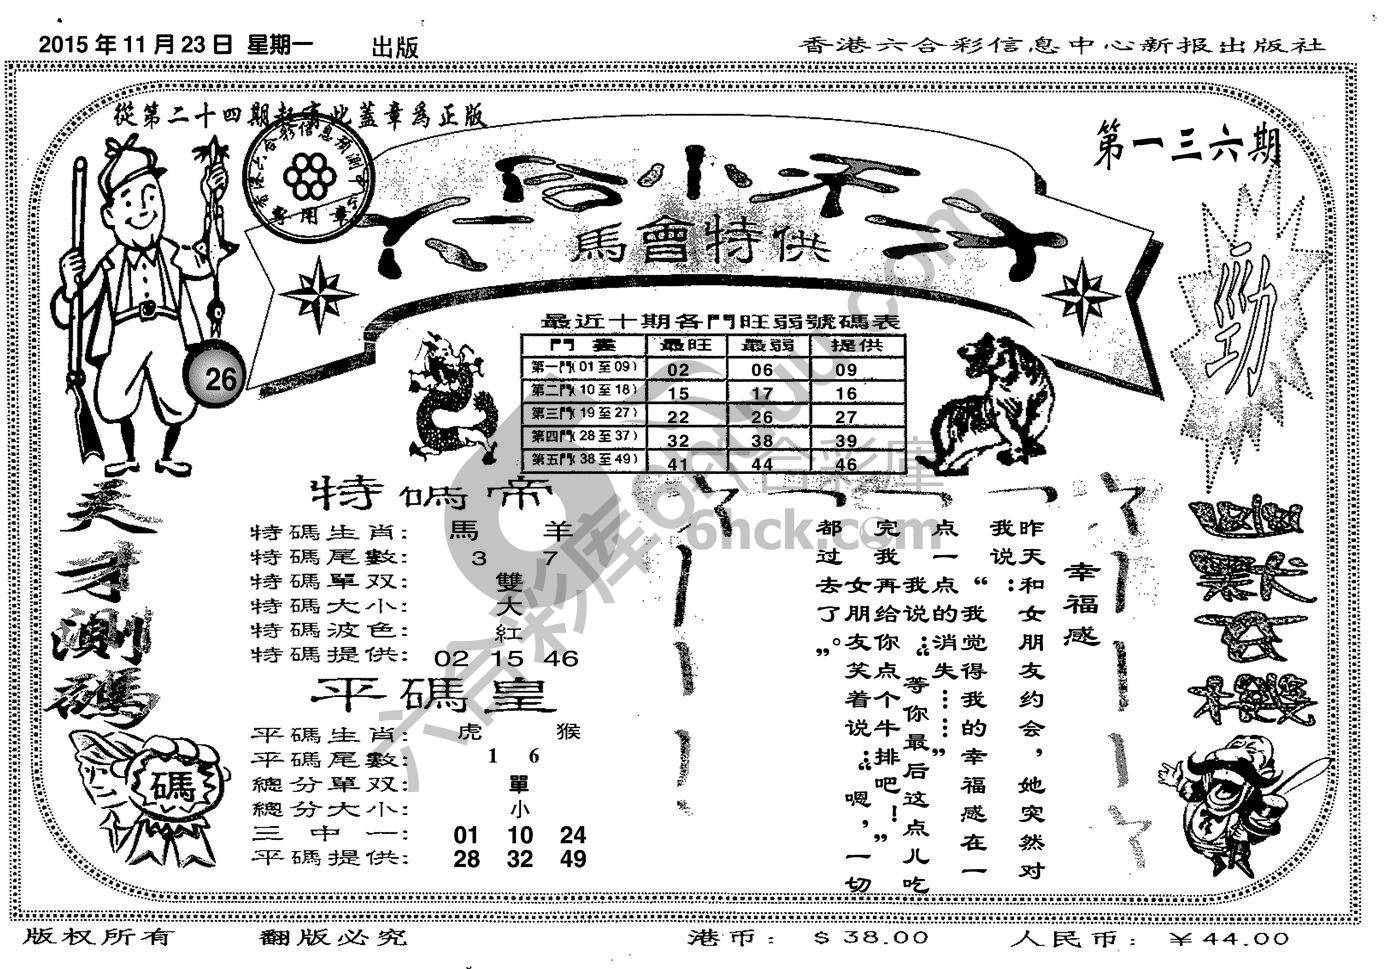 2015年11月23日 星期一 出版
香港六合彩信息中心新报出版社
從第二十四期起蓋此蓋章為正版
第一三六期
專用章
六合小天子
馬會特供
勁
26
最近十期各門旺弱號碼表
門數 最旺 最弱 提供
第一門(01至09) 02 06 09
第二門(10至18) 15 17 16
第三門(19至27) 22 26 27
第四門(28至37) 32 38 39
第五門(38至49) 41 44 46
天才測碼
碼
特碼帝
特碼生肖: 馬 羊
特碼尾數: 3 7
特碼單双: 雙
特碼大小: 大
特碼波色: 紅
特碼提供: 02 15 46
平碼皇
平碼生肖: 虎 猴
平碼尾數: 1 6
總分單双: 單
總分大小: 小
三中一: 01 10 24
平碼提供: 28 32 49
幸福感
昨天和女朋友约会，她突然对
我说：“我觉得我的幸福感在一
点一点的消失……”
我说：“等你最后这点儿吃
完我再给你点个牛排吧！”
女朋友笑着说：“嗯，一切
都过去了。”
六合彩库 6hck.com
六合彩庫
版权所有 翻版必究 港币：$38.00 人民币：￥44.00